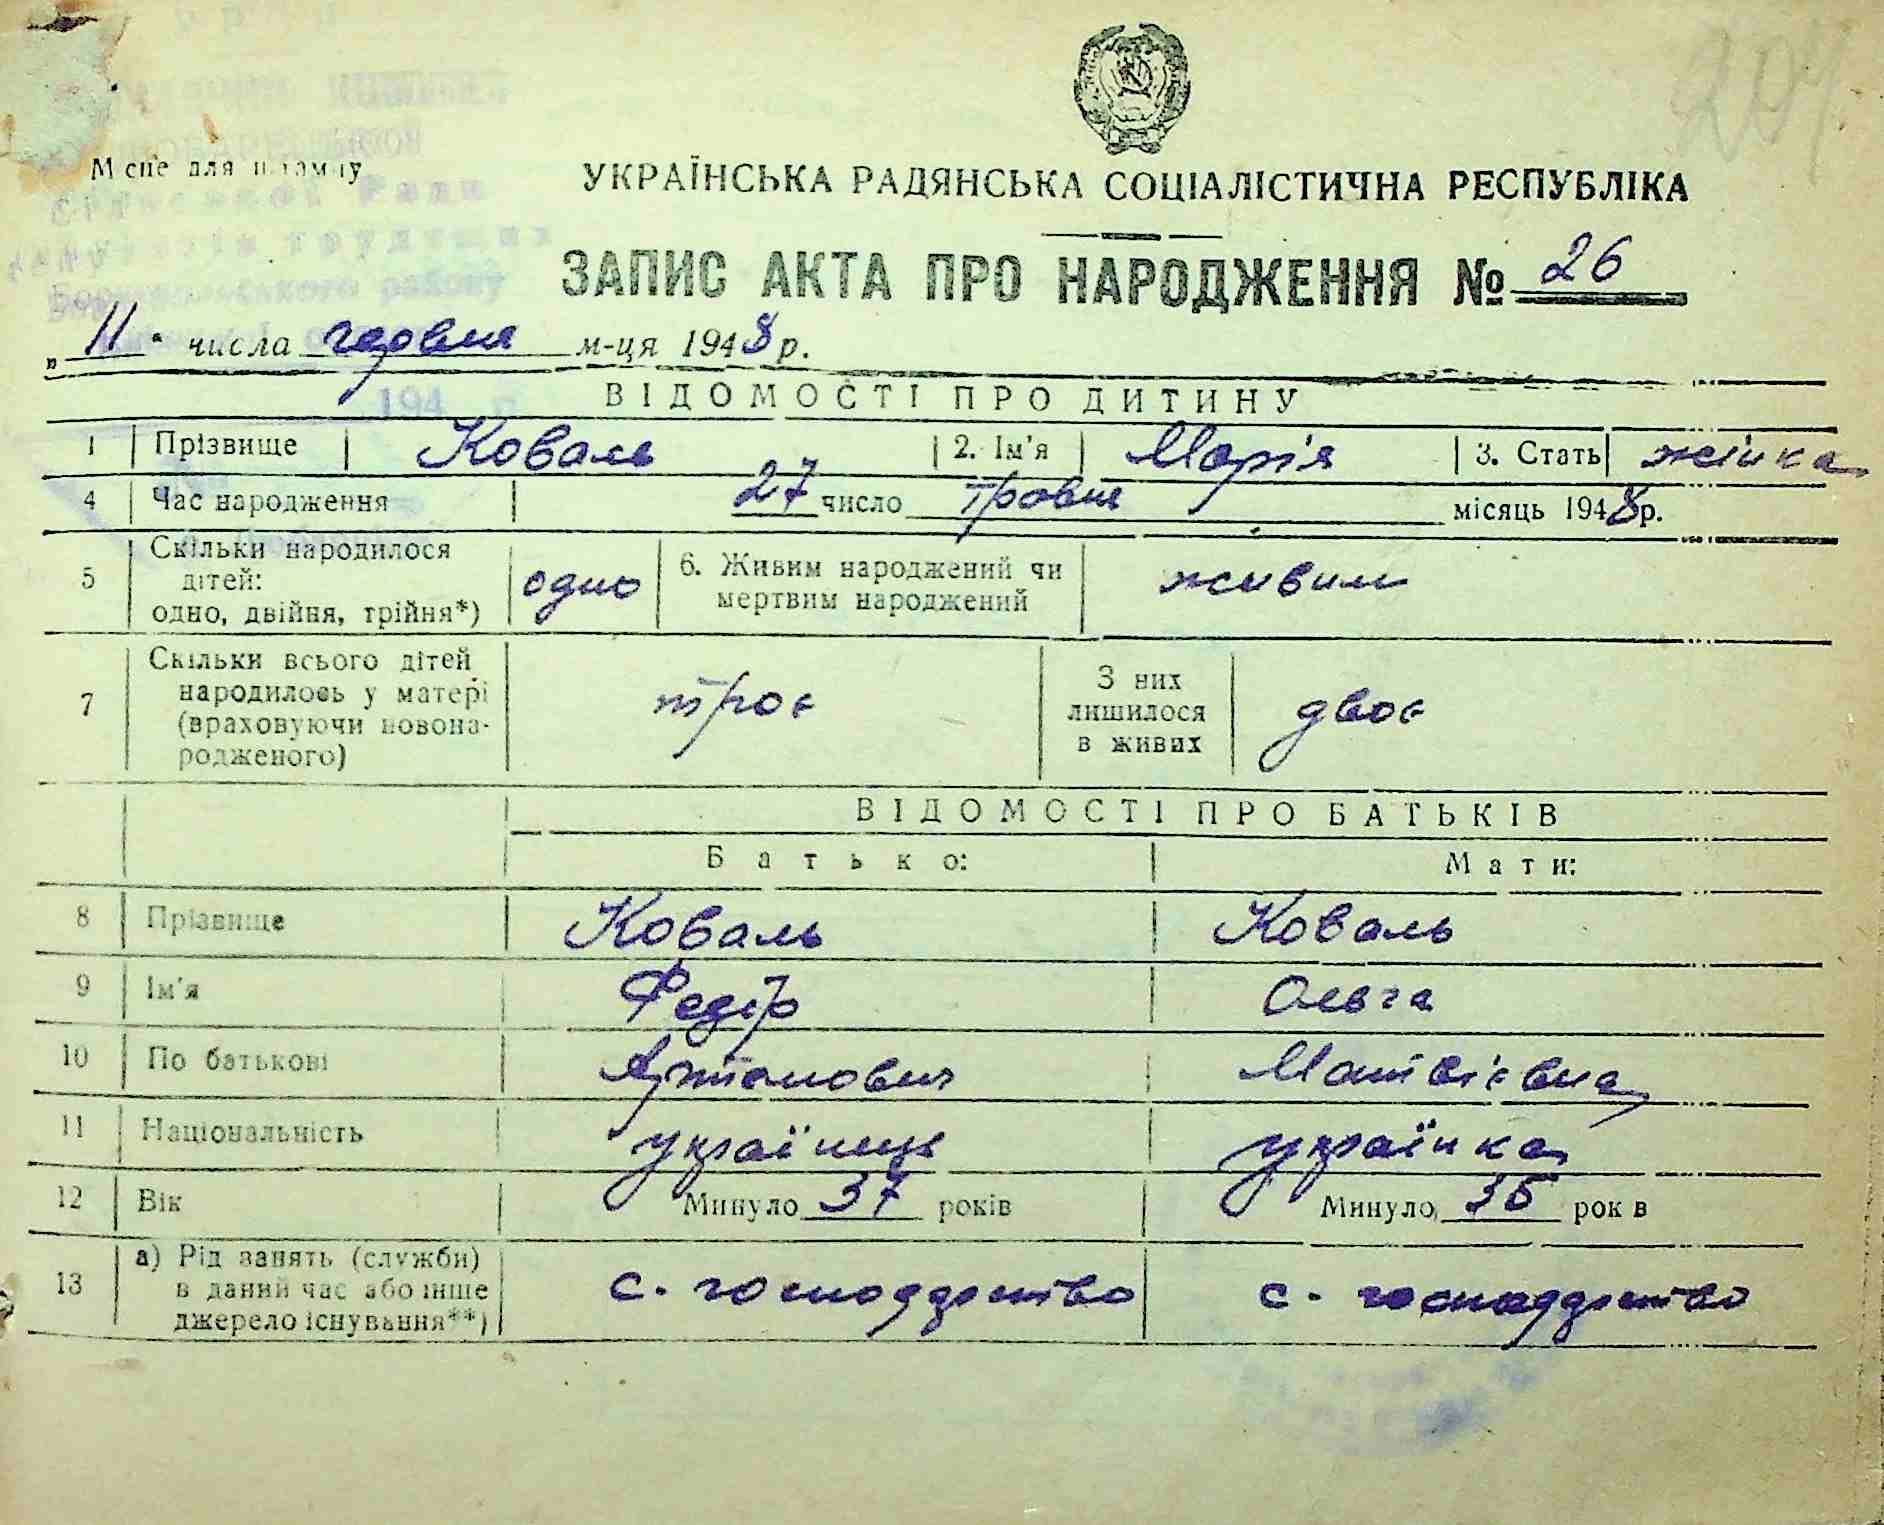 204
Місце для штампу
УКРАЇНСЬКА РАДЯНСЬКА СОЦІАЛІСТИЧНА РЕСПУБЛІКА
ЗАПИС АКТА ПРО НАРОДЖЕННЯ № 26
„ 11 “ числа червня м-ця 1948 р.
194 р
ВІДОМОСТІ ПРО ДИТИНУ
1 Прізвище Коваль 2. Ім'я Марія 3. Стать жінка
4 Час народження 27 число травня місяць 1948 р.
5 Скільки народилося дітей: одно, двійня, трійня*) одно 6. Живим народжений чи мертвим народжений живим
7 Скільки всього дітей народилось у матері (враховуючи новонародженого) троє З них лишилося в живих двоє
ВІДОМОСТІ ПРО БАТЬКІВ
Батько: Мати:
8 Прізвище Коваль Коваль
9 Ім'я Федір Ольга
10 По батькові Матвієвна
11 Національність українець українка
12 Вік Минуло 37 років Минуло 35 рок в
13 а) Рід занять (служби) в даний час або інше джерело існування**) с. господарство с. господарство